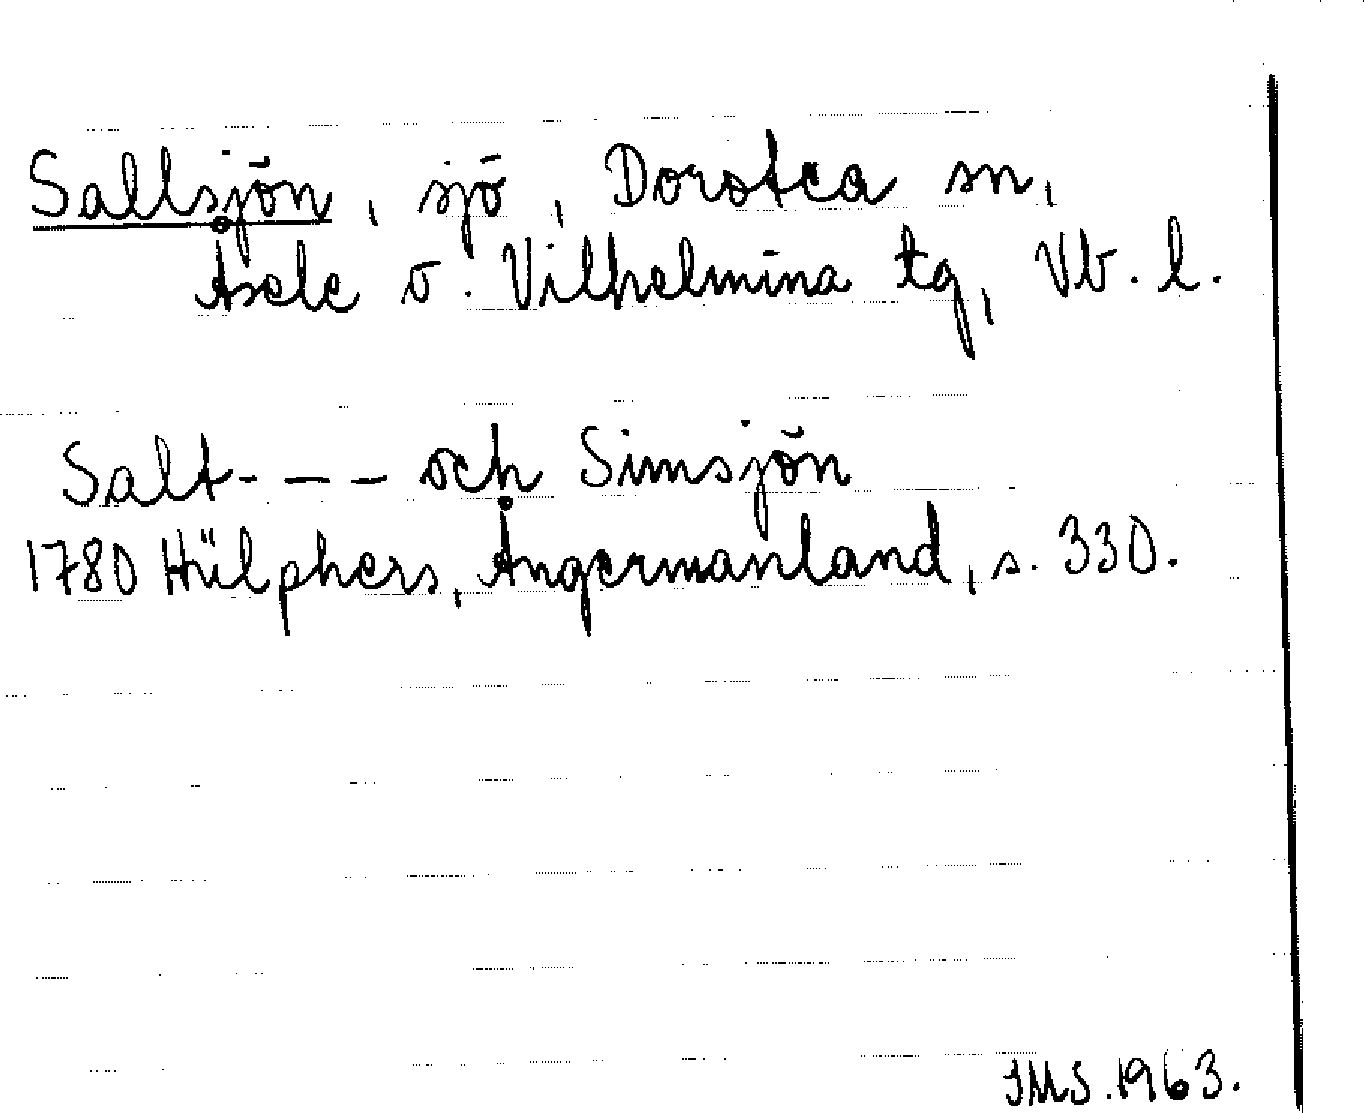 Sallsjön, sjö, Dorotea sn,
Åsele o. Vilhelmina tg, Vb. l.
Salt- - - och Simsjön
1780 Hülphers, Ångermanland, s. 330.
IMS. 1963.